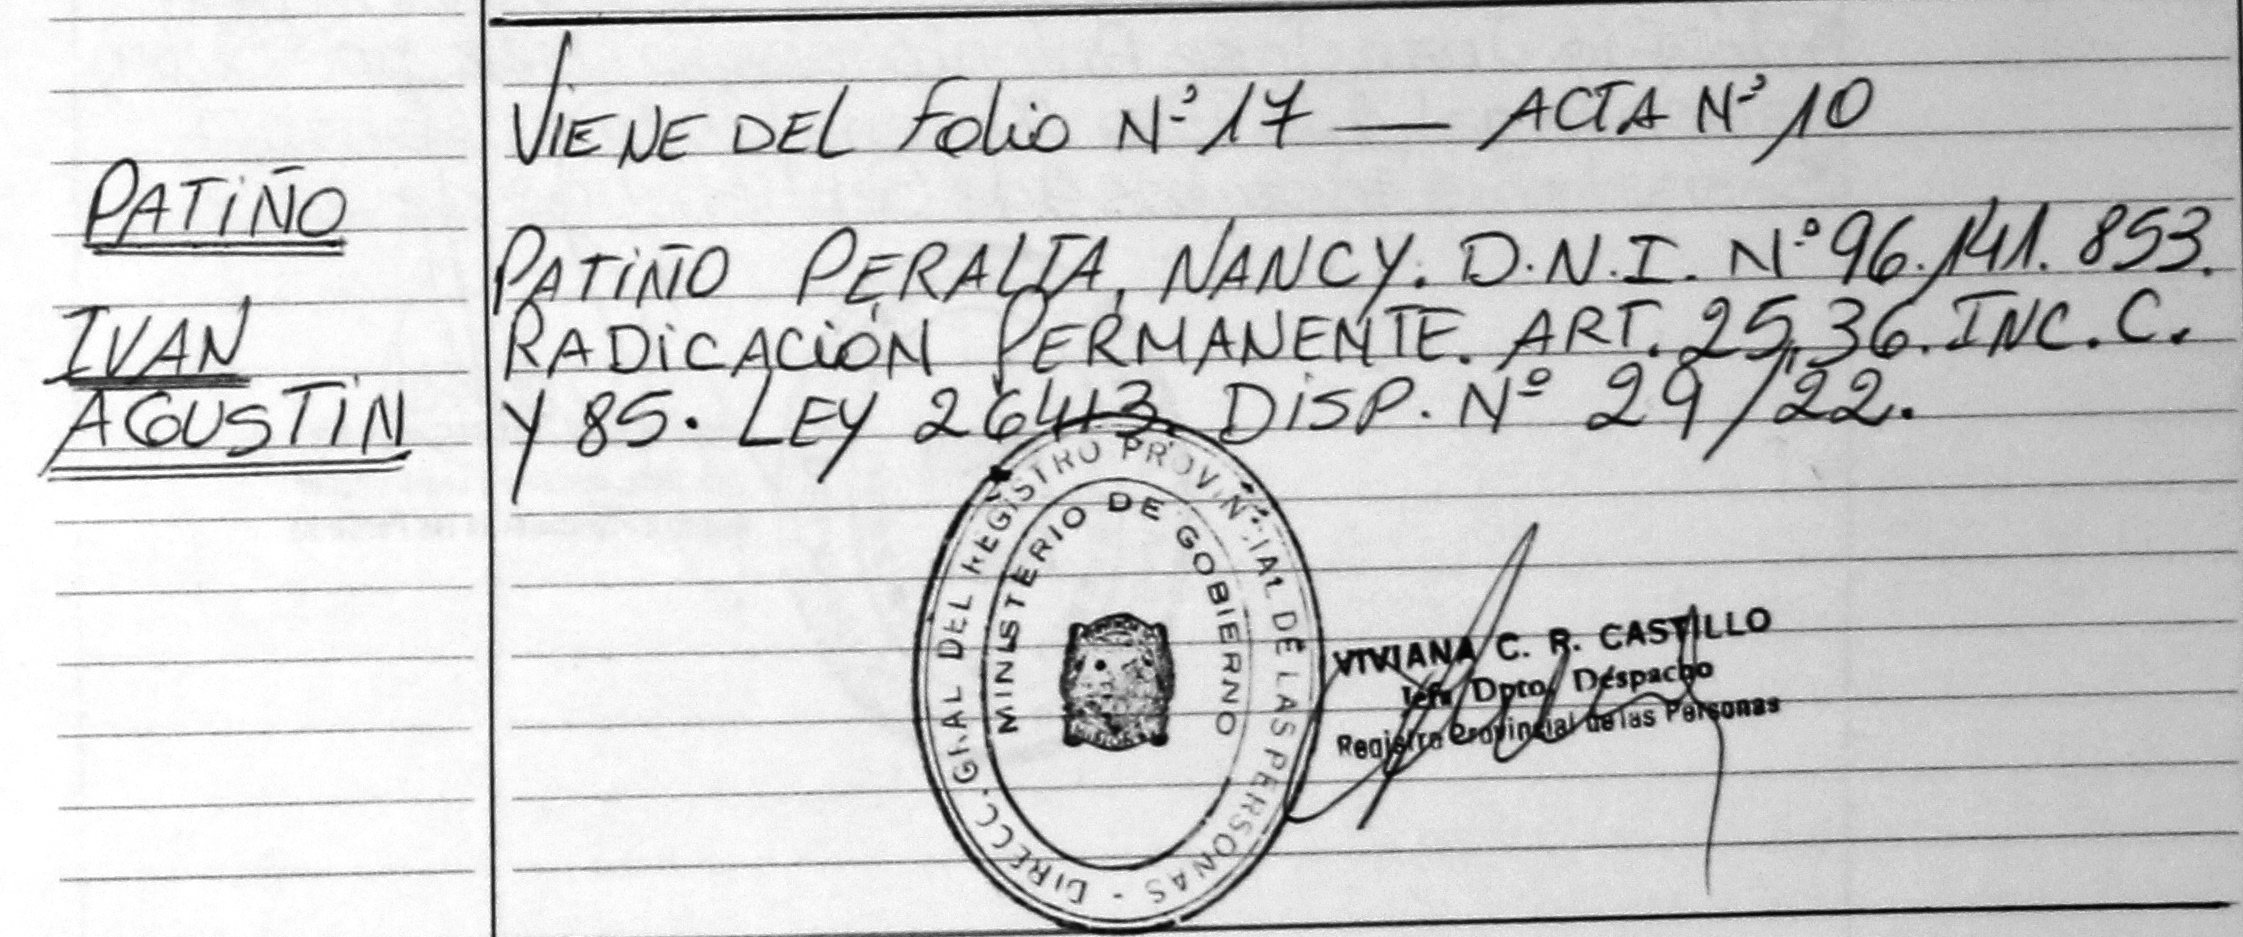 VIENE DEL FOLIO Nº 17 — ACTA Nº 10
PATIÑO
PATIÑO PERALTA, NANCY. D.N.I. Nº 96.141.853.
IVAN
RADICACIÓN PERMANENTE. ART. 25, 36. INC. C.
AGUSTIN
Y 85. LEY 26413. DISP. Nº 29/22.
DIRECC. GRAL DEL REGISTRO PROVINCIAL DE LAS PERSONAS -
MINISTERIO DE GOBIERNO
VIVIANA C. R. CASTILLO
Jefa Dpto. Despacho
Registro Provincial de las Personas